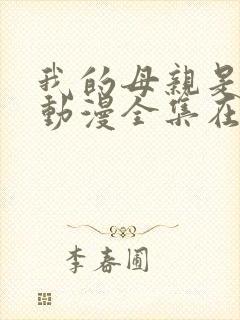 我的母親是
動漫全集在
李春圃